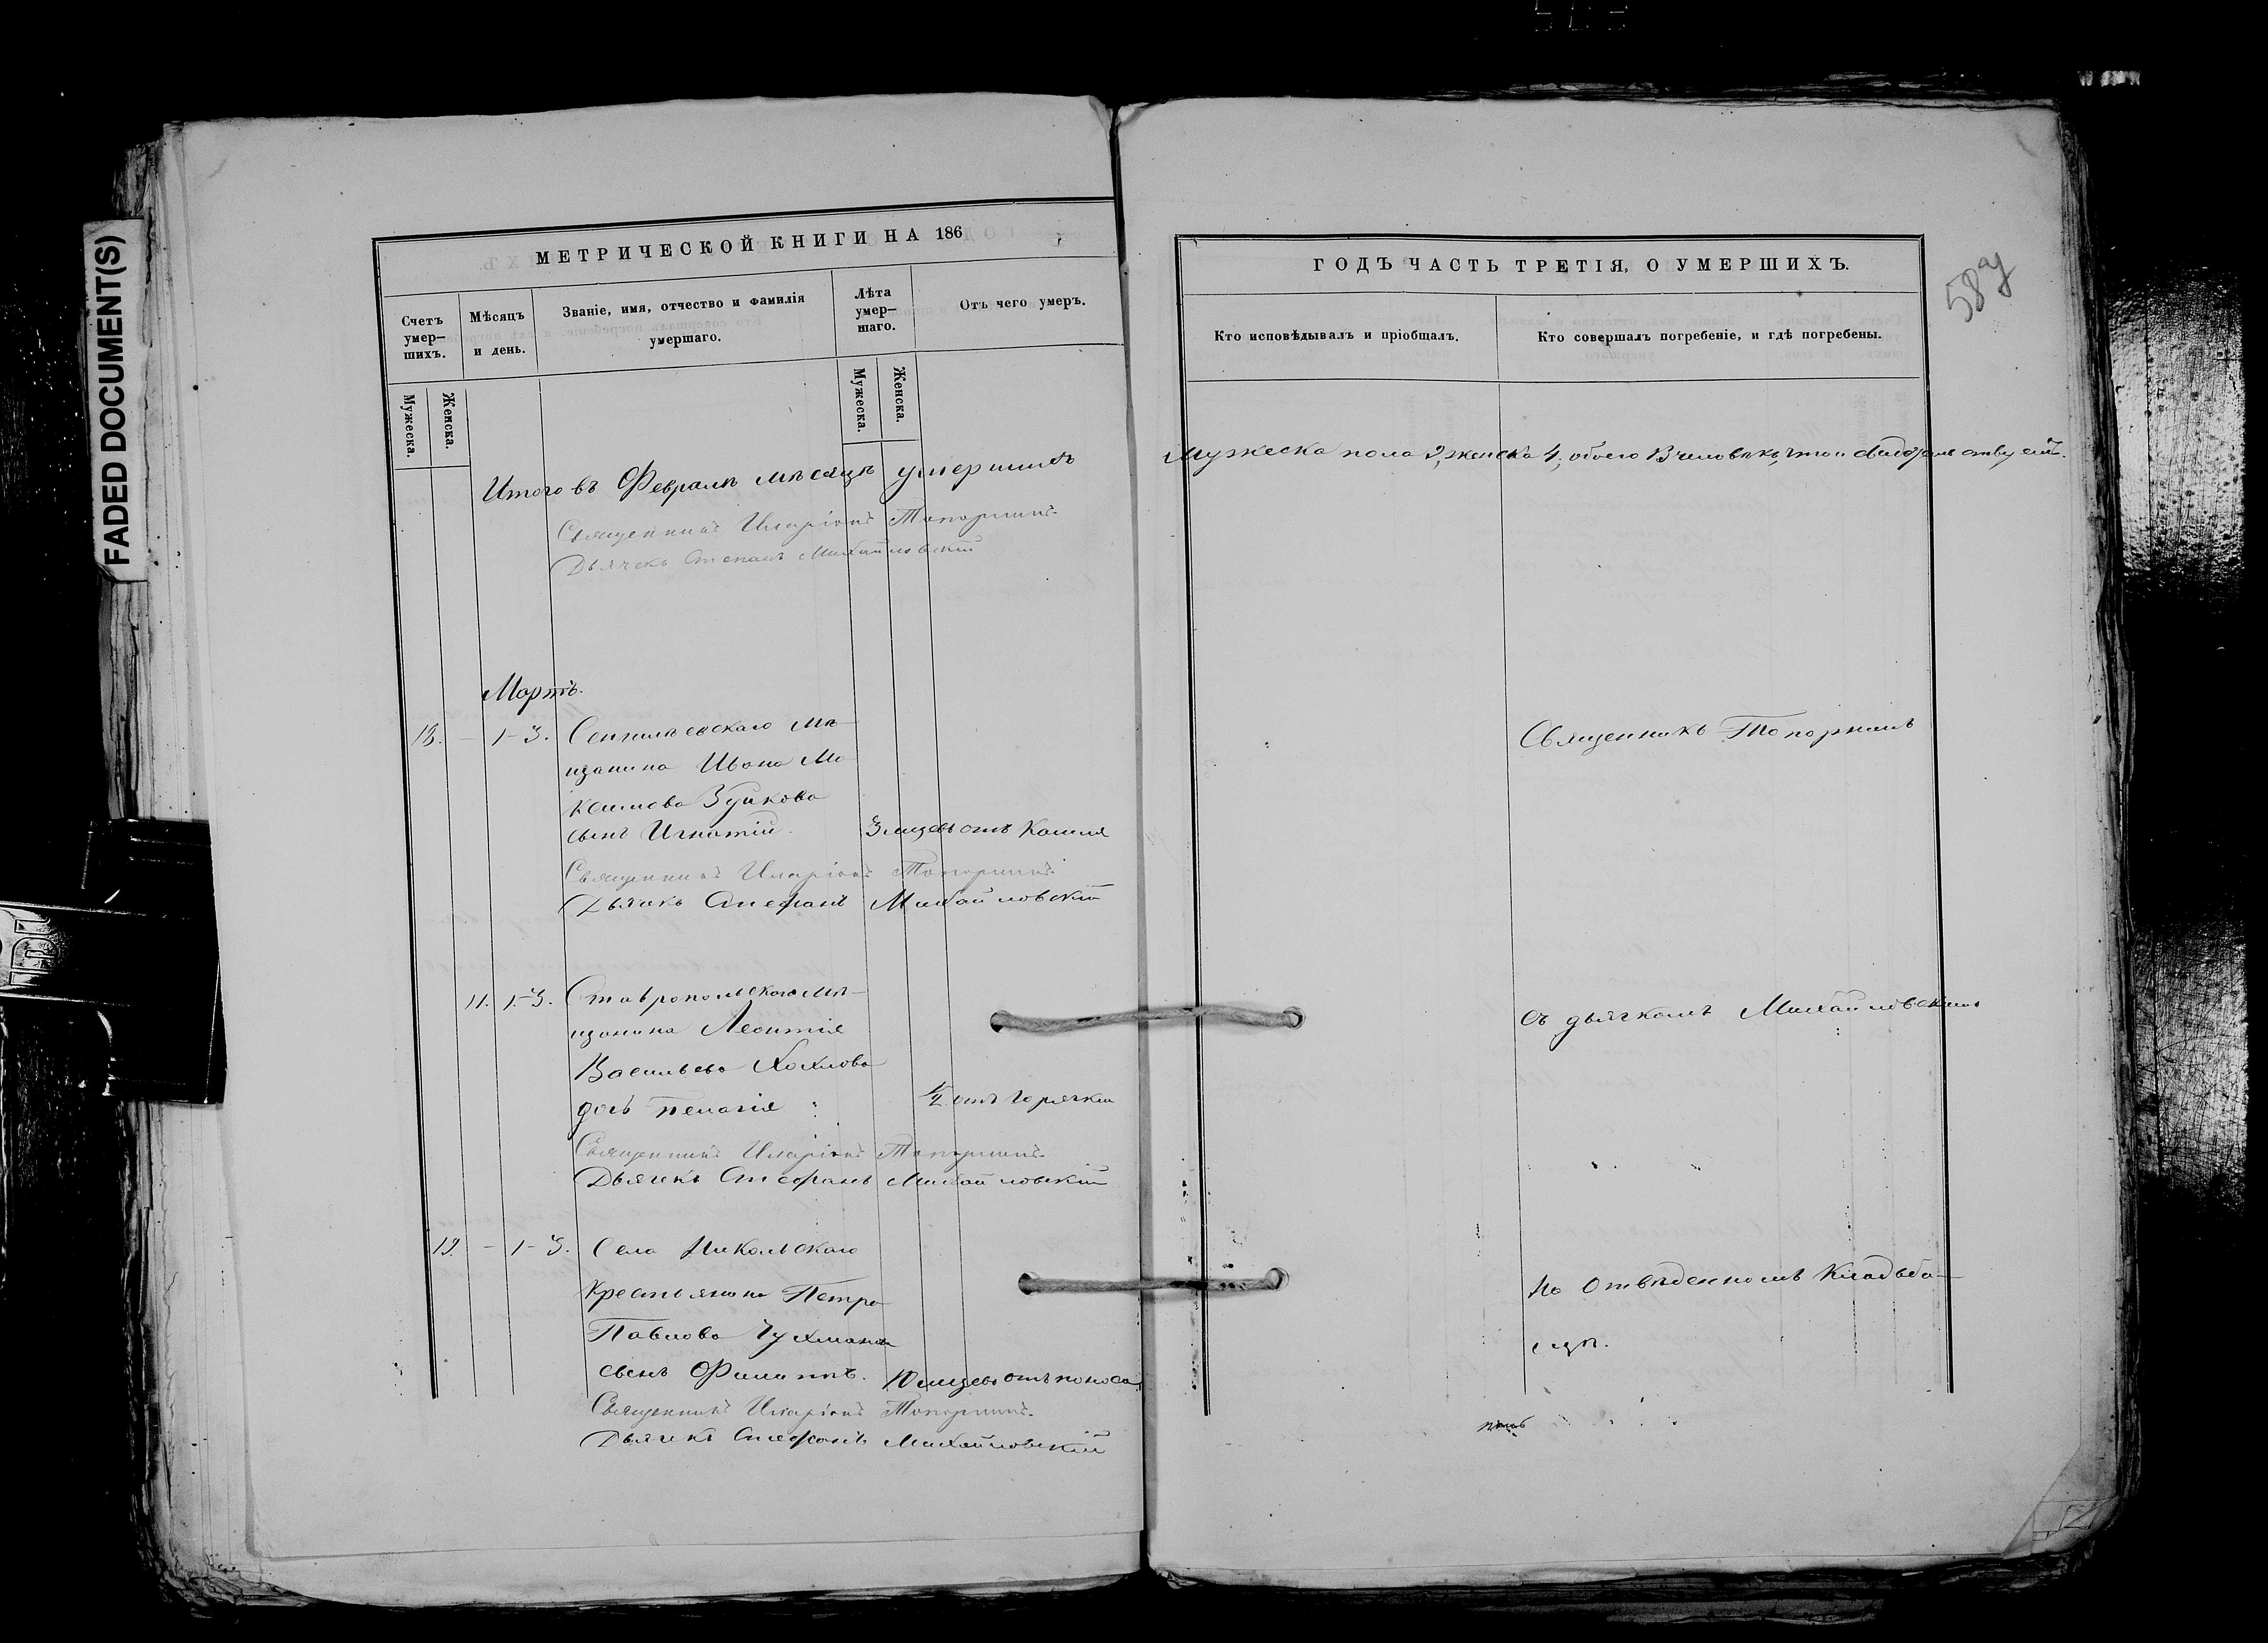 FADED DOCUMENT(S)
МЕТРИЧЕСКОЙ КНИГИ НА 186
Счетъ умер—шихъ.
Мѣсяцъ и день.
Званіе, имя, отчество и фамилія умершаго.
Лѣта умер—шаго.
Отъ чего умеръ.
Мужеска.
Женска.
Мужеска.
Женска.
Итого въ Февралѣ мѣсяцѣ умершихъ
Священникъ Иларіонъ Топорнинъ
Дьячекъ Стефанъ Михайловскій
Мартъ.
13. – 1–3. Сенгилѣевскаго мѣ–
щанина Ивана Ма
ксимова Зуйкова
сынъ Игнатій. 3 мцевъ отъ кашля
Священникъ Иларіонъ Топорнинъ
Дьячекъ Стефанъ Михайловскій
11. 1–3. Ставропольскаго мѣ–
щанина Леонтія
Васильева Хохлова
дочь Пелагія 1/2 отъ горячки
Священникъ Иларіонъ Топорнинъ
Дьячекъ Стефанъ Михайловскій
– 1–3. Села Никольскаго
крестьянина Петра
Павлова
сынъ Филиппъ. 10 мцевъ отъ поноса
Священникъ Иларіонъ Топорнинъ.
Дьячекъ Стефанъ Михайловскій
ГОДЪ ЧАСТЬ ТРЕТІЯ, О УМЕРШИХЪ.
Кто исповѣдывалъ и пріобщалъ.
Кто совершалъ погребеніе, и гдѣ погребены.
Мужеска пола 9, женска 4, обоего 13 человѣкъ, что и свидѣтельствуемъ.
Священникъ Топорнинъ
съ дьячкомъ Михайловскимъ
на отвѣденномъ кладьба–
ищѣ.